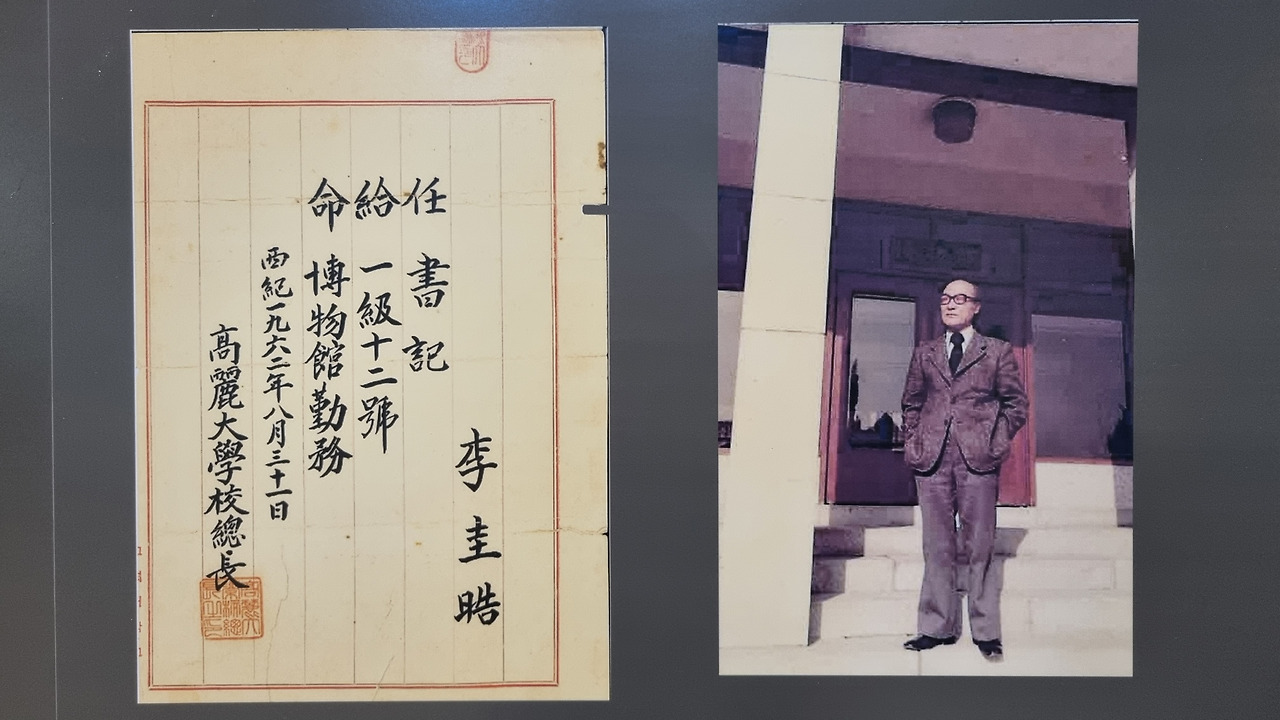 李圭晧
任 書記
給 一級十二號
命 博物館勤務
西紀一九六二年八月三十一日
高麗大學校總長